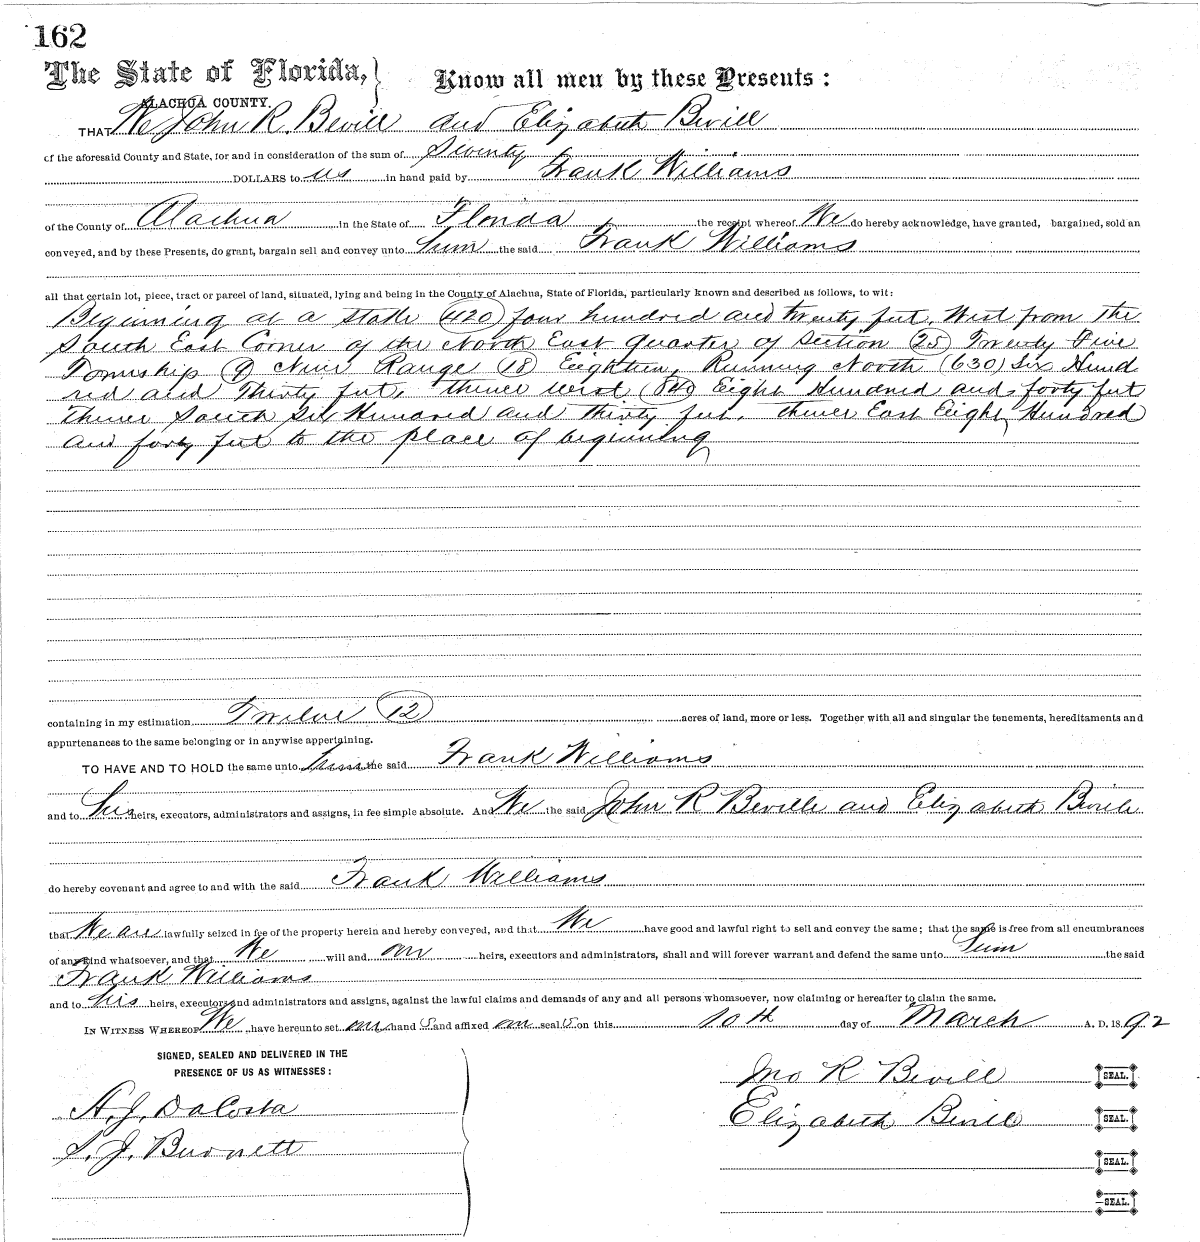 162
The State of Florida,
ALACHUA COUNTY.
Know all men by these Presents :
THAT We John R. Bevill and Elizabeth Bevill
of the aforesaid County and State, for and in consideration of the sum of Seventy
DOLLARS to us in hand paid by Frank Williams
of the County of Alachua in the State of Florida the receipt whereof We do hereby acknowledge, have granted, bargained, sold an
conveyed, and by these Presents, do grant, bargain sell and convey unto him the said Frank Williams
all that certain lot, piece, tract or parcel of land, situated, lying and being in the County of Alachua, State of Florida, particularly known and described as follows, to wit:
Beginning at a stake 420 four hundred and twenty feet, West from the
South East Corner of the North East quarter of Section 25 Twenty Five
Township 9 Nine Range 18 Eighteen, Running North (630) Six Hund
red and Thirty feet, thence west 840 Eight Hundred and forty feet
thence South Six Hundred and thirty feet, thence East Eight Hundred
and forty feet to the place of beginning
containing in my estimation Twelve 12 acres of land, more or less. Together with all and singular the tenements, hereditaments and
appurtenances to the same belonging or in anywise appertaining.
TO HAVE AND TO HOLD the same unto him the said Frank Williams
and to his heirs, executors, administrators and assigns, in fee simple absolute. And We the said John R Beville and Elizabeth Bevile
do hereby covenant and agree to and with the said Frank Williams
that We are lawfully seized in fee of the property herein and hereby conveyed, and that We have good and lawful right to sell and convey the same; that the same is free from all encumbrances
of any kind whatsoever, and that We will and our heirs, executors and administrators, shall and will forever warrant and defend the same unto him the said
Frank Williams
and to his heirs, executors and administrators and assigns, against the lawful claims and demands of any and all persons whomsoever, now claiming or hereafter to claim the same.
IN WITNESS WHEREOF We have hereunto set our hand s and affixed our seal s on this 10th day of March A. D. 1892
SIGNED, SEALED AND DELIVERED IN THE
PRESENCE OF US AS WITNESSES :
Jno R Bevill SEAL.
H. J. DaCosta
Elizabeth Bevill SEAL.
S. J. Burnett
SEAL.
SEAL.